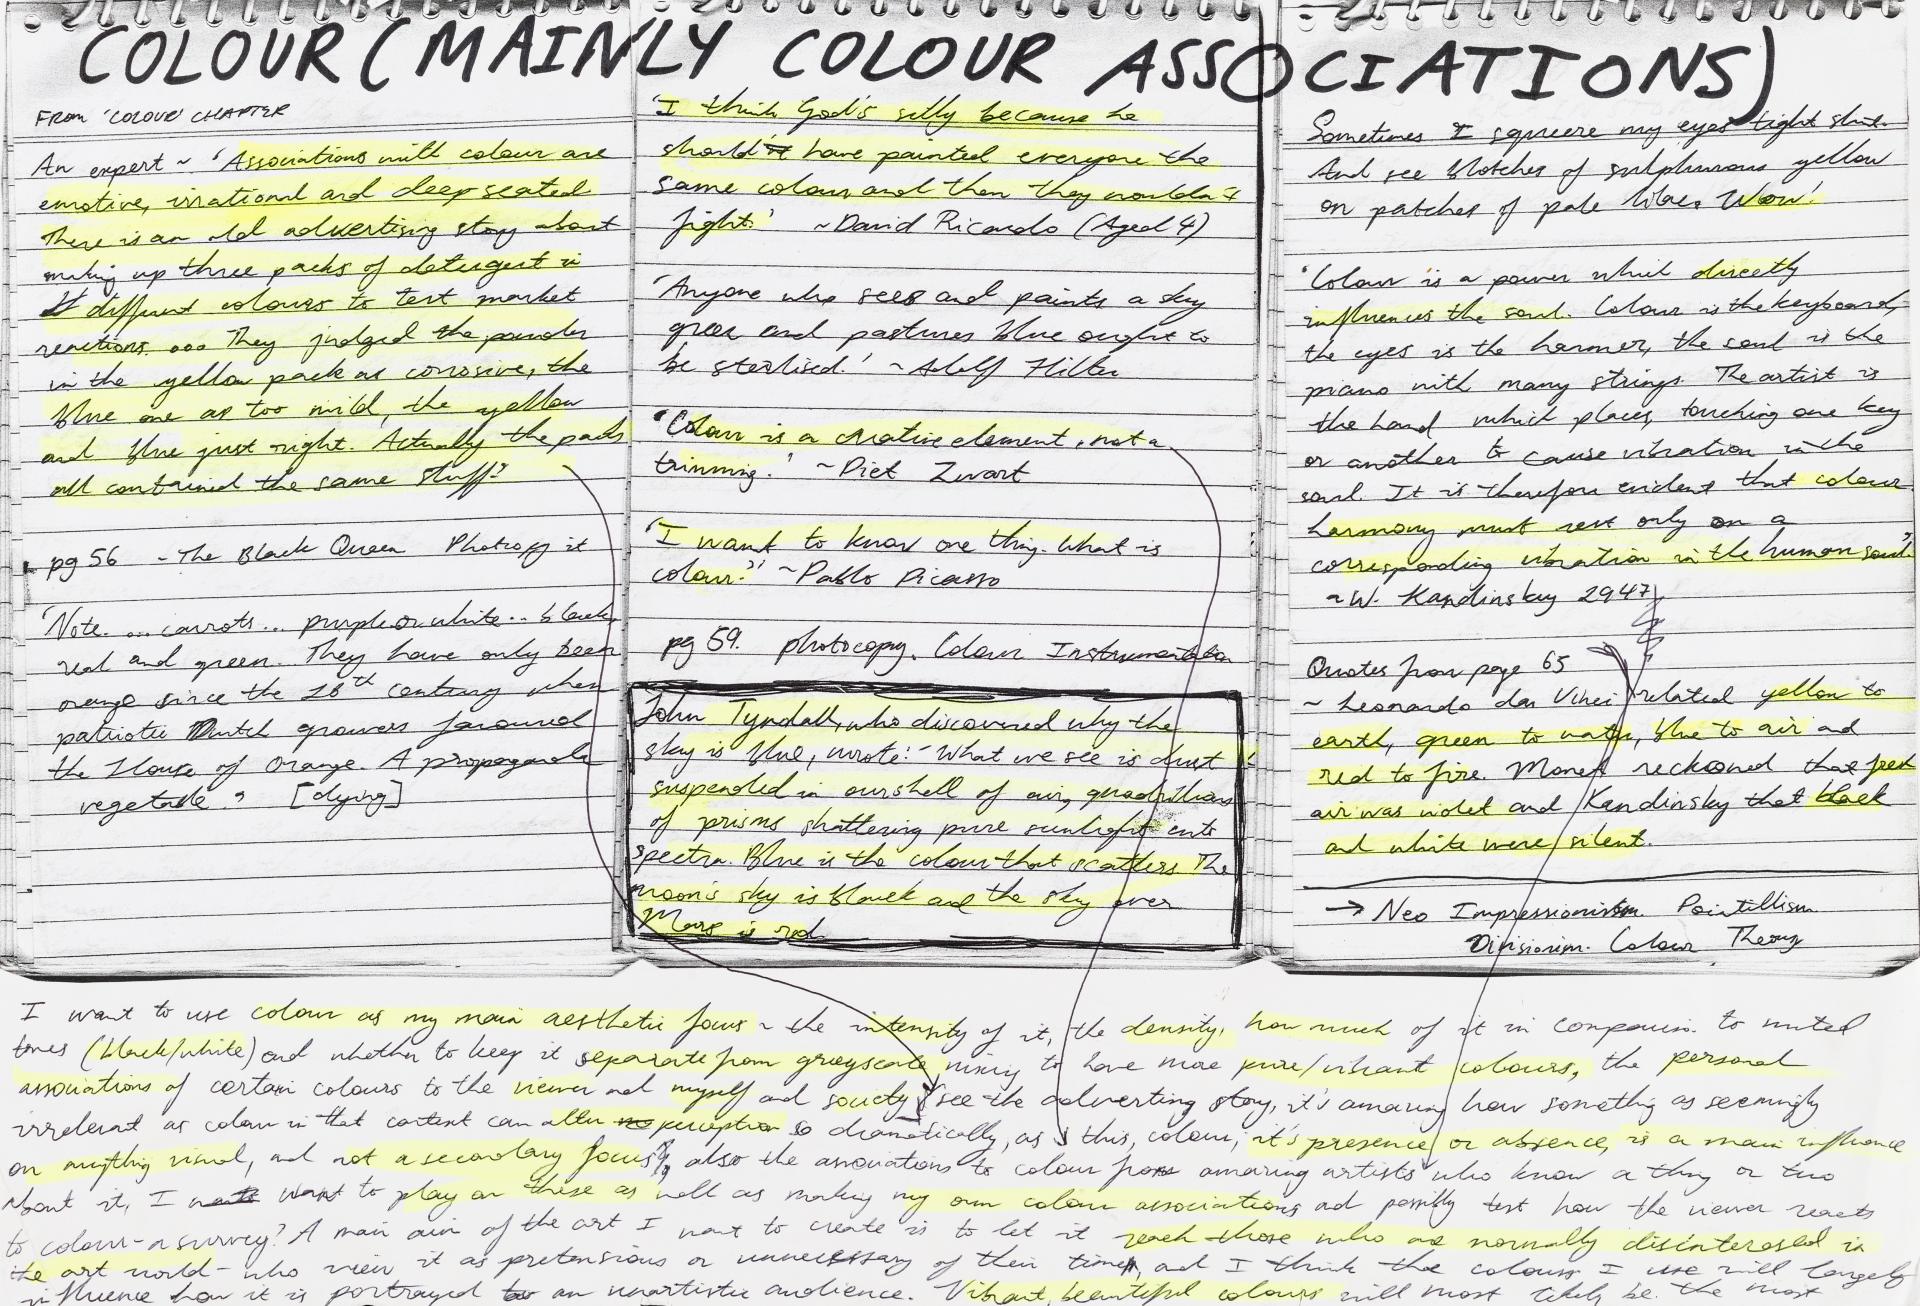 COLOUR (MAINLY COLOUR ASSOCIATIONS)
FROM 'COLOUR' CHAPTER
An expert ~ 'Associations with colour are
emotive, irrational and deep seated
There is an old advertising story about
making up three packs of detergent in
different colours to test market
reactions. ... They judged the powder
in the yellow pack as corrosive, the
blue one as too mild, the yellow
and blue just right. Actually the packs
all contained the same stuff.'
pg 56 - The Black Queen Photocopy it
'Note. ... carrots ... purple or white .. black,
red and green. They have only been
orange since the 18th century when
patriotic Dutch growers favoured
the House of Orange. A propaganda
vegetable.' [dying]
'I think God's silly because he
should have painted everyone the
same colour and then they wouldn't
fight.' ~David Ricardo (Aged 4)
'Anyone who sees and paints a sky
green and pastures blue ought to
be sterilised.' ~ Adolf Hitler
'Colour is a creative element, not a
trimming.' ~Piet Zwart
'I want to know one thing. What is
colour?' ~Pablo Picasso
pg 59. photocopy. Colour Instrumentation
John Tyndall, who discovered why the
sky is blue, wrote: 'What we see is dust
suspended in our shell of air, quadrillions
of prisms shattering pure sunlight into
spectra. Blue is the colour that scatters. The
moon's sky is black and the sky over
Mars is red
Sometimes I squeeze my eyes tight shut.
And see blotches of sulphurous yellow
on patches of pale lilac. Wow!
'Colour is a power which directly
influences the soul. Colour is the keyboard,
the eyes is the harmer, the soul is the
piano with many strings. The artist is
the hand which places, touching one key
or another to cause vibration in the
soul. It is therefore evident that colour
harmony must rest only on a
corresponding vibration in the human soul.'
~W. Kandinsky 1947
Quotes from page 65
~ Leonardo da Vinci related yellow to
earth, green to water, blue to air and
red to fire. Monet reckoned that fresh
air was violet and Kandinsky that black
and white were silent.
→ Neo Impressionism. Pointillism
Divisionism. Colour Theory
I want to use colour as my main aesthetic focus ~ the intensity of it, the density, how much of it in comparison to muted
tones (black/white) and whether to keep it separate from greyscale mixing to have more pure/vibrant colours, the personal
associations of certain colours to the viewer and myself and society (see the adverting story, it's amazing how something as seemingly
irrelevant as colour in that context can alter perception so dramatically, as this, colour, it's presence or absence, is a main influence
on anything visual, and not a secondary focus), also the associations to colour from amazing artists who know a thing or two
about it, I want to play on these as well as making my own colour associations and possibly test how the viewer reacts
to colour - a survey? A main aim of the art I want to create is to let it reach those who are normally disinterested in
the art world - who view it as pretensious or unnecessary of their time, and I think the colours I use will largely
influence how it is portrayed to an unartistic audience. Vibrant, beautiful colours will most likely be the most